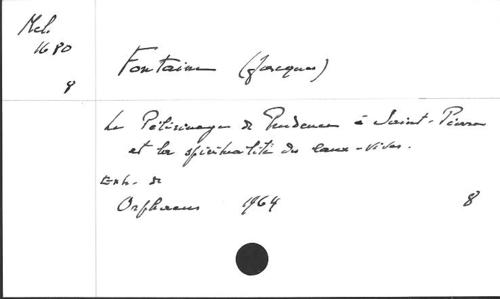 Mel.
1680
8
Fontaine (Jacques)
Le Pèlerinage de Prudence à Saint-Pierre
et la spiritualité des eaux-vives.
Extr. de
Orpheus 1964 8